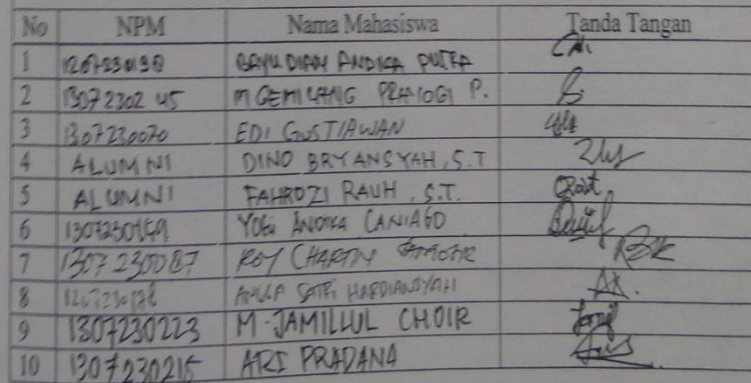 No NPM Nama Mahasiswa Tanda Tangan
1 BAYU DIAN ANDIKA PUTRA
2 13072302 45 M GEMILANG PRAYOGI P.
3 1307230070 EDI GUSTIAWAN
4 ALUMNI DINO BRYANSYAH, S.T
5 ALUMNI FAHROZI RAUH, S.T.
6 1307230159 YOGI ANDIKA CANIAGO
7 1307 230087 ROY CHARTIN
8 ANGGA SATRI HARDIANSYAH
9 1307230223 M. JAMILLUL CHOIR
10 1307230215 ARI PRADANA